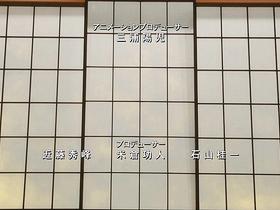 アニメーションプロデューサー
三浦陽児
プロデューサー
近藤秀峰 米倉功人 石山桂一